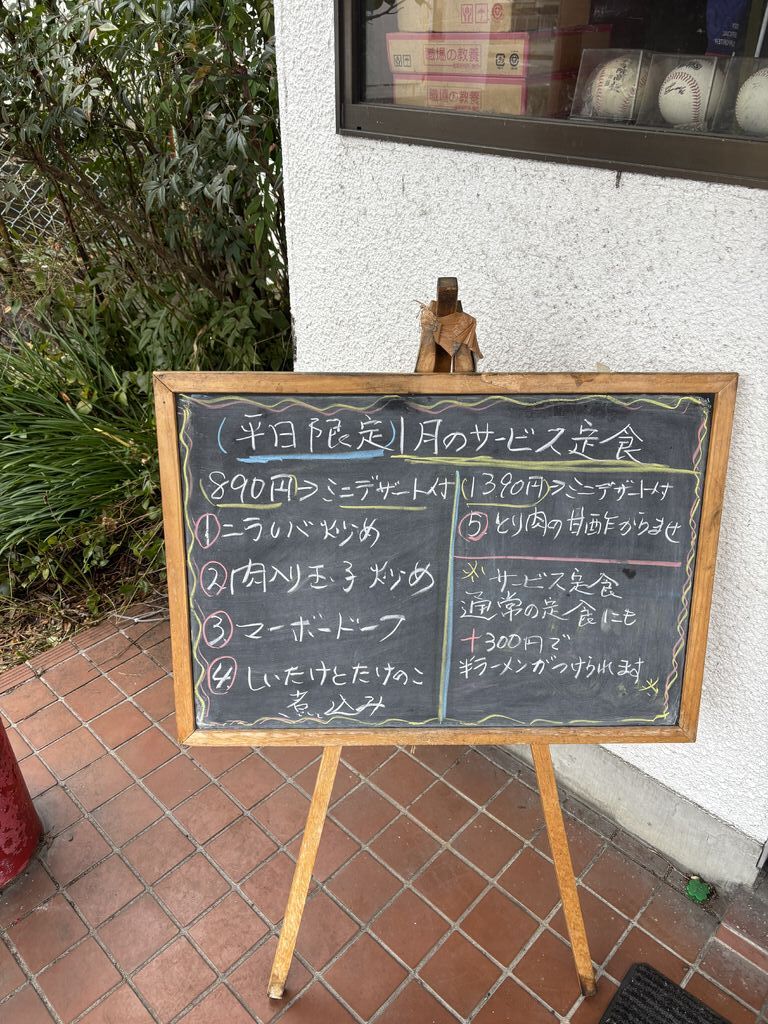 職場の教養
職場の教養
(平日限定)1月のサービス定食
(890円→ミニデザート付
①ニラレバ炒め
②肉入り玉子炒め
③マーボードーフ
④しいたけとたけのこ
煮込み
(1390円)→ミニデザート付
⑤とり肉の甘酢からませ
※サービス定食
通常の定食にも
+300円で
半ラーメンがつけられます※